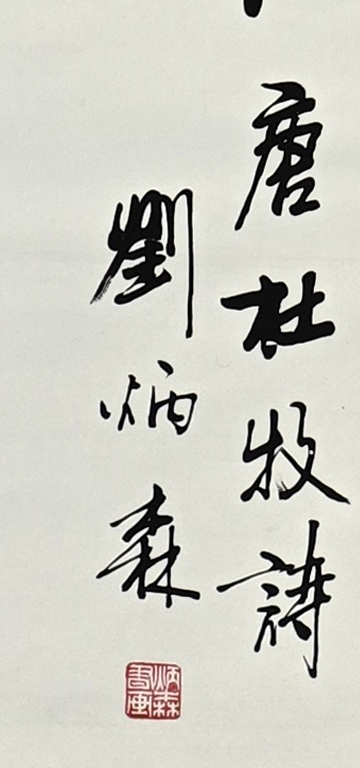 唐杜牧詩
劉炳森
炳森書画